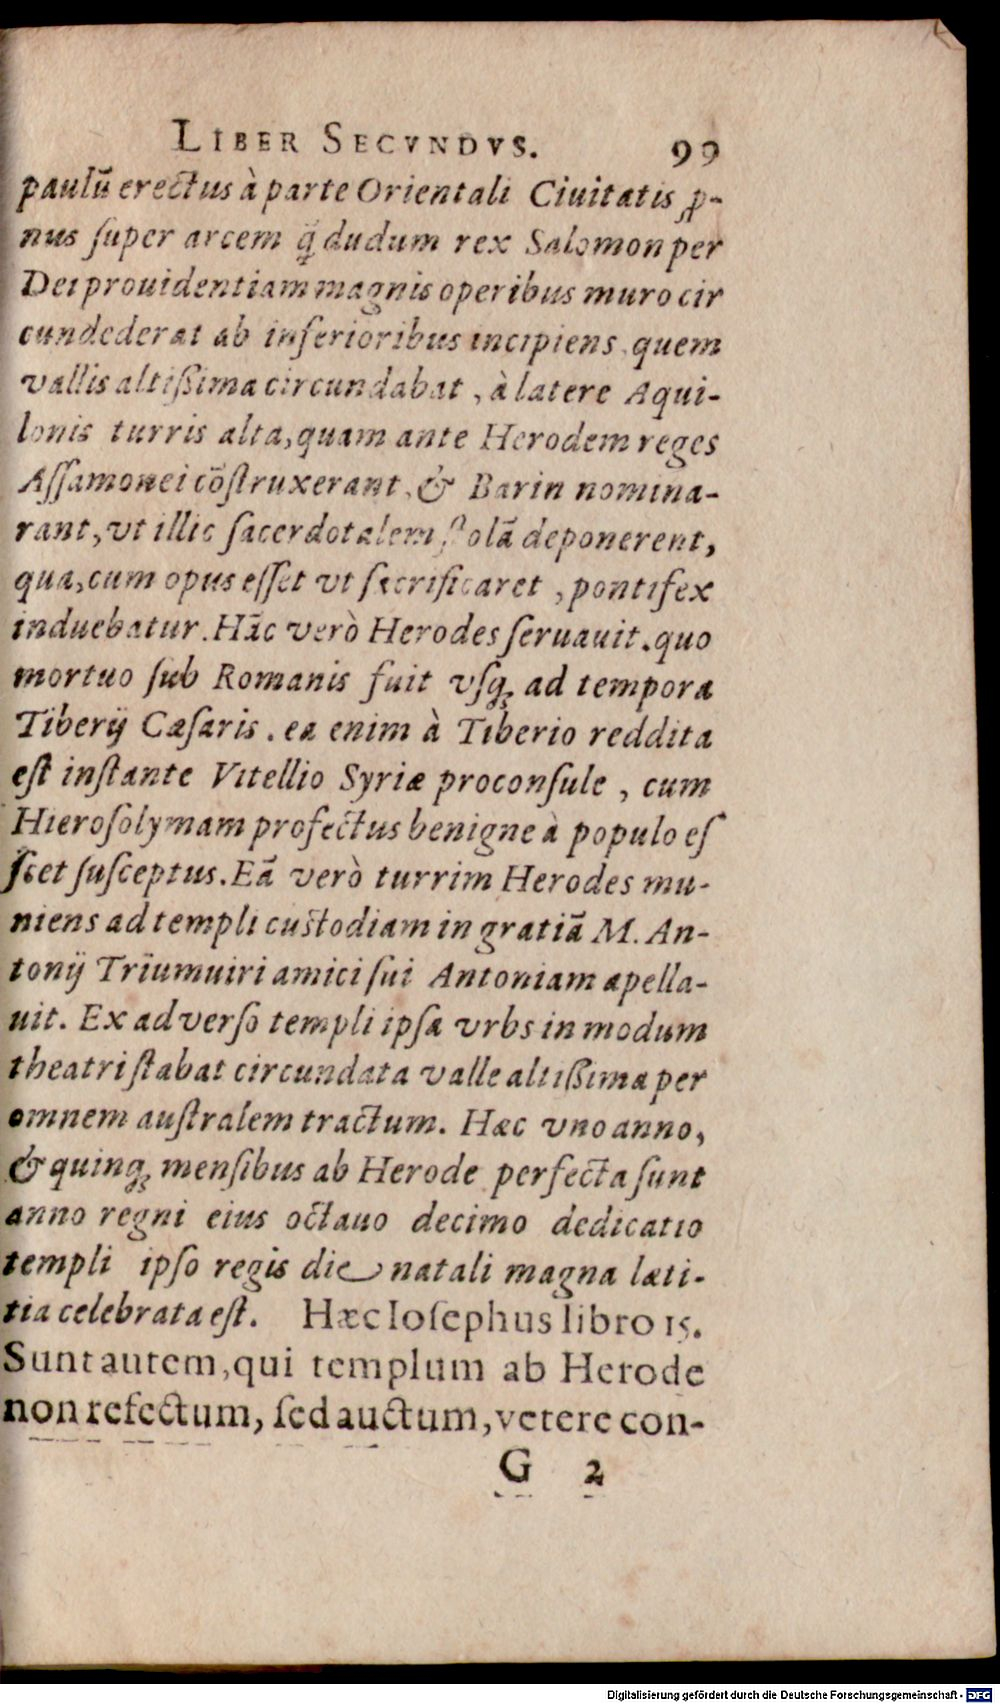 LIBER SECVNDVS. 99
paulū erectus à parte Orientali Ciuitatis ꝓ-
nus ſuper arcem q̃ dudum rex Salomon per
Dei prouidentiam magnis operibus muro cir
cundederat ab inferioribus incipiens, quem
vallis altiſsima circundabat, à latere Aqui-
lonis turris alta, quam ante Herodem reges
Aſſamonei cōſtruxerant, & Barin nomina-
rant, vt illic ſacerdotalem ſtolā deponerent,
qua, cum opus eſſet vt ſacrificaret, pontifex
induebatur. Hāc verò Herodes ſeruauit. quo
mortuo ſub Romanis fuit vſq; ad tempora
Tiberij Cæſaris. ea enim à Tiberio reddita
eſt inſtante Vitellio Syriæ proconſule, cum
Hieroſolymam profectus benigne à populo eſ
ſcet ſuſceptus. Eā verò turrim Herodes mu-
niens ad templi cuſtodiam in gratiā M. An-
tonij Triumuiri amici ſui Antoniam apella-
uit. Ex aduerſo templi ipſa vrbs in modum
theatri ſtabat circundata valle altiſsima per
omnem auſtralem tractum. Hæc vno anno,
& quinq; menſibus ab Herode perfecta ſunt
anno regni eius octauo decimo dedicatio
templi ipſo regis die natali magna læti-
tia celebrata eſt. Hæc Ioſephus libro 15.
Sunt autem, qui templum ab Herode
non refectum, ſed auctum, vetere con-
G 2
Digitalisierung gefördert durch die Deutsche Forschungsgemeinschaft - DFG